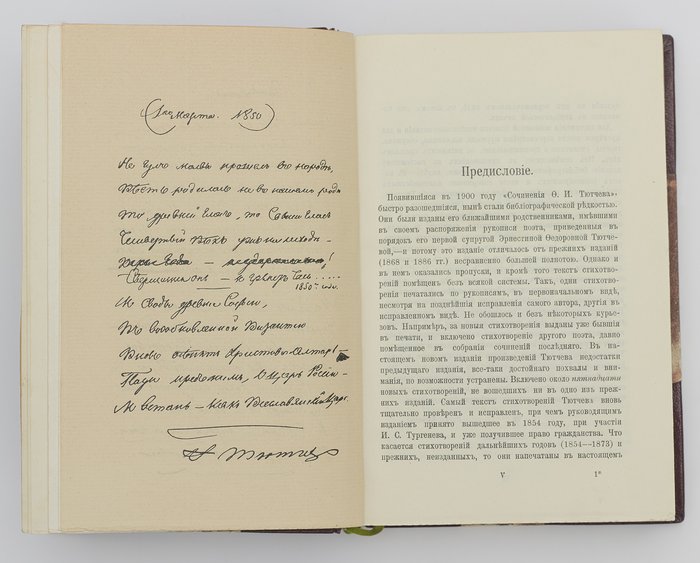 (1го Марта. 1850)
Не гулъ молвы прошелъ въ народѣ,
Вѣсть родилась не въ нашемъ родѣ
То древній гласъ, то Свыше гласъ
Четвертый Вѣкъ ужъ на исходѣ -
Свершится онъ - и грянетъ Часъ . . . .
1850-й годъ.
И Своды древніе Софіи,
Въ возобновленной Византіи
Вновь осѣнятъ Христовъ Олтарь -
Пади предъ нимъ, о Царь Россіи -
И встань - какъ Всеславянскій Царь.
Тютчевъ
Предисловіе.
Появившіяся въ 1900 году «Сочиненія Ѳ. И. Тютчева»,
быстро разошедшіяся, нынѣ стали библіографической рѣдкостью.
Они были изданы его ближайшими родственниками, имѣвшими
въ своемъ распоряженіи рукописи поэта, приведенныя въ
порядокъ его первой супругой Эрнестиной Ѳедоровной Тютче-
вой,—и потому это изданіе отличалось отъ прежнихъ изданій
(1868 и 1886 гг.) несравненно большей полнотою. Однако и
въ немъ оказались пропуски, и кромѣ того текстъ стихотво-
реній помѣщенъ безъ всякой системы. Такъ, одни стихотво-
ренія печатались по рукописямъ, въ первоначальномъ видѣ,
несмотря на позднѣйшія исправленія самого автора, другія въ
исправленномъ видѣ. Не обошлось и безъ нѣкоторыхъ курье-
зовъ. Напримѣръ, за новыя стихотворенія выданы уже бывшія
въ печати, и включено стихотвореніе другого поэта, давно
помѣщенное въ собраніи сочиненій послѣдняго. Въ на-
стоящемъ новомъ изданіи произведеній Тютчева недостатки
предыдущаго изданія, все-таки достойнаго похвалы и вни-
манія, по возможности устранены. Включено около пятнадцати
новыхъ стихотвореній, не вошедшихъ ни въ одно изъ преж-
нихъ изданій. Самый текстъ стихотвореній Тютчева вновь
тщательно провѣренъ и исправленъ, при чемъ руководящимъ
изданіемъ принято вышедшее въ 1854 году, при участіи
И. С. Тургенева, и уже получившее право гражданства. Что
касается стихотвореній дальнѣйшихъ годовъ (1854—1873) и
прежнихъ, неизданныхъ, то они напечатаны въ настоящемъ
V
1*